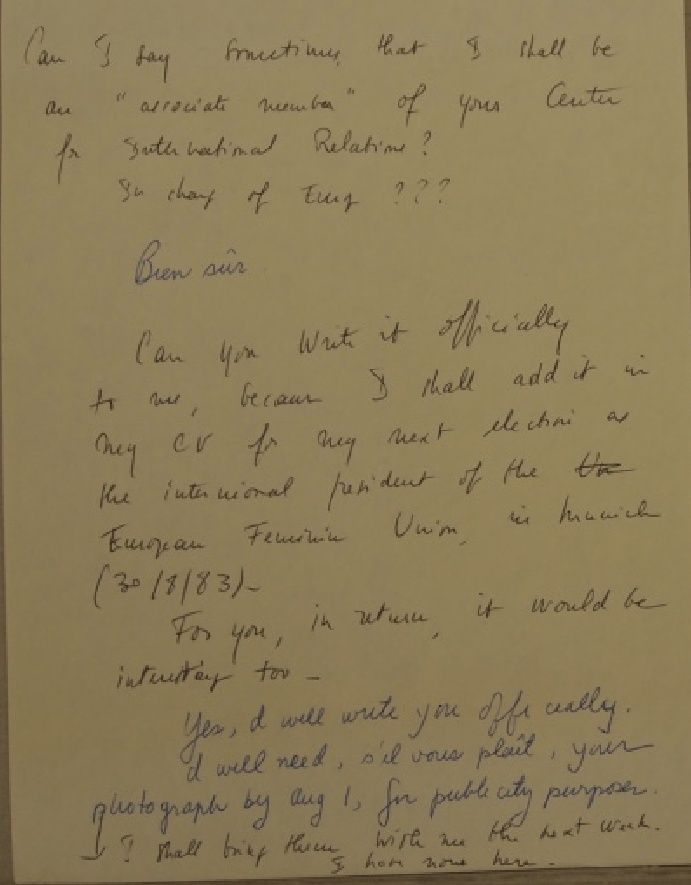 Can I say sometimes that I shall be
an "associate member" of your Center
for International Relations?
In charg of Europ ???
Bien sûr.
Can you write it officially
to me, because I shall add it in
my CV for my next election as
the internional president of the
European Feminin Union, in Munich
(30/8/83)-
For you, in return, it would be
interesting too -
Yes, I will write you officially.
I will need, s'il vous plaît, your
photograph by Aug 1, for publicity purposes.
I shall bring them with me the next week.
I have none here.